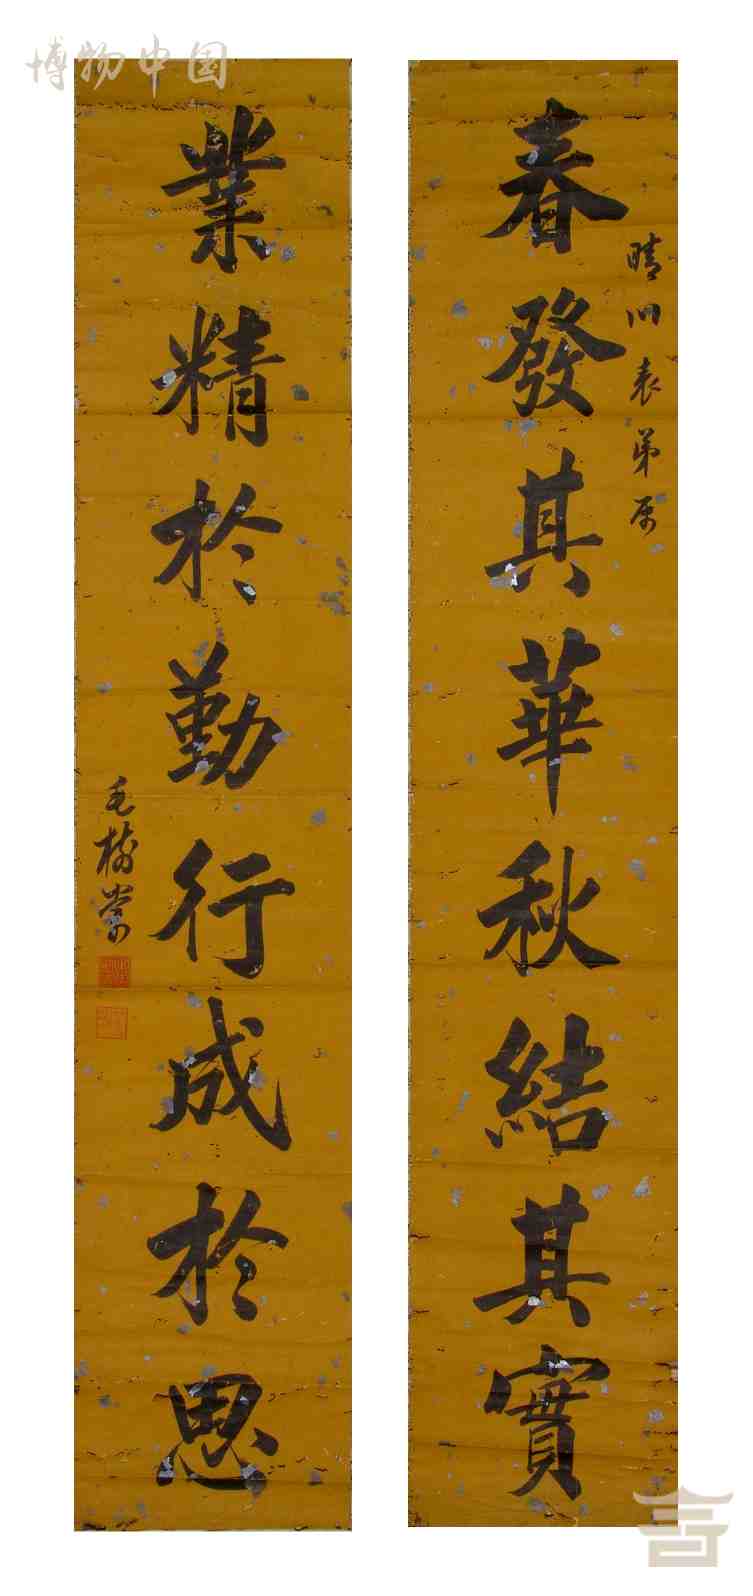 博物中国
晴川表弟属
春發其華秋結其實
業精於勤行成於思
毛樹棠